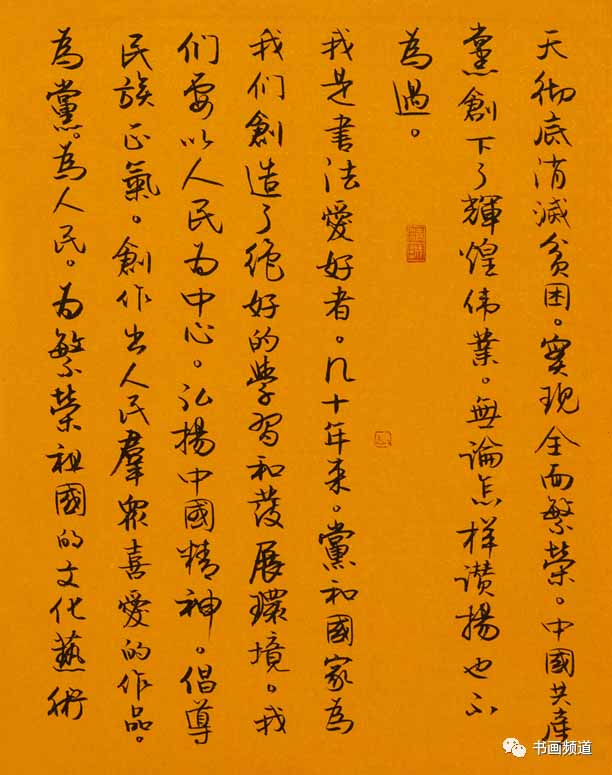 天彻底消滅贫困。實现全面繁榮。中國共產
黨創下了輝煌伟業。無論怎样讚揚也不
為過。
我是書法愛好者。几十年来。黨和國家為
我们創造了绝好的學習和發展環境。我
们要以人民为中心。弘揚中國精神。倡導
民族正氣。創作出人民羣眾喜愛的作品。
為黨。為人民。为繁榮祖國的文化藝術
书画频道